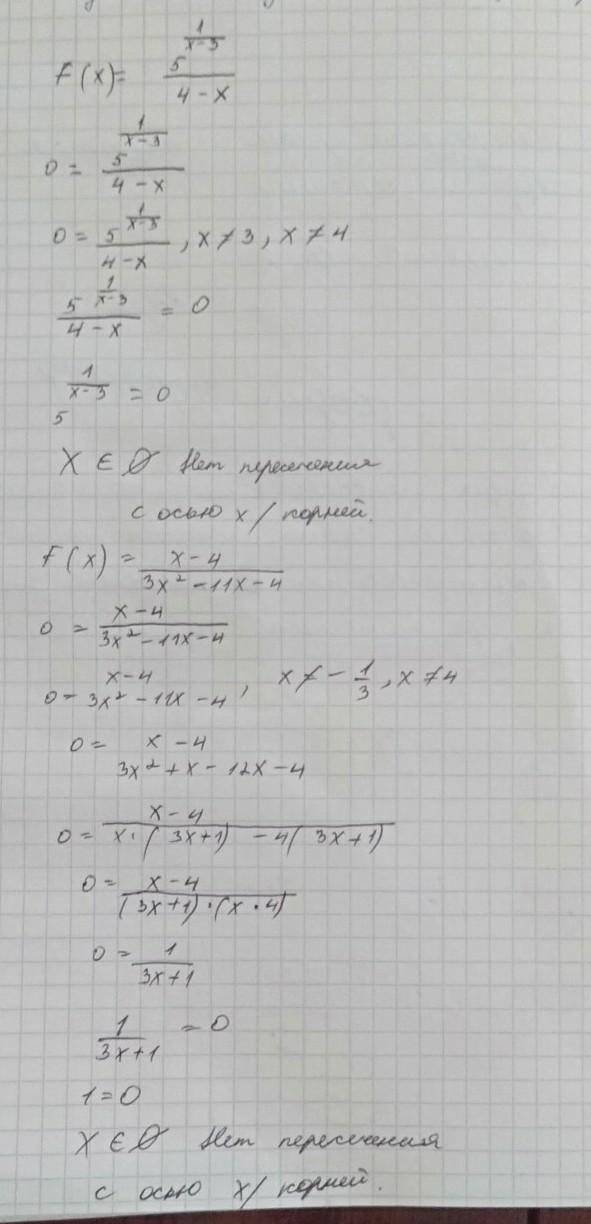 F(x) = 5^(1/(x-3)) / (4-x)
0 = 5^(1/(x-3)) / (4-x)
0 = 5^(1/(x-3)) / (4-x), x ≠ 3, x ≠ 4
5^(1/(x-3)) / (4-x) = 0
5^(1/(x-3)) = 0
X ∈ ∅ Нет пересечения
с осью x / корней.
F(x) = (x-4) / (3x² - 11x - 4)
0 = (x-4) / (3x² - 11x - 4)
0 = (x-4) / (3x² - 11x - 4), x ≠ -1/3, x ≠ 4
0 = (x-4) / (3x² + x - 12x - 4)
0 = (x-4) / (x·(3x+1) - 4(3x+1))
0 = (x-4) / ((3x+1)·(x·4))
0 = 1 / (3x+1)
1 / (3x+1) = 0
1 = 0
X ∈ ∅ Нет пересечения
с осью x / корней.